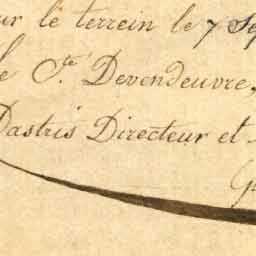 ur le terrein le 7 Sep
le S.te Devendeuvre,
Dastris Directeur et
G